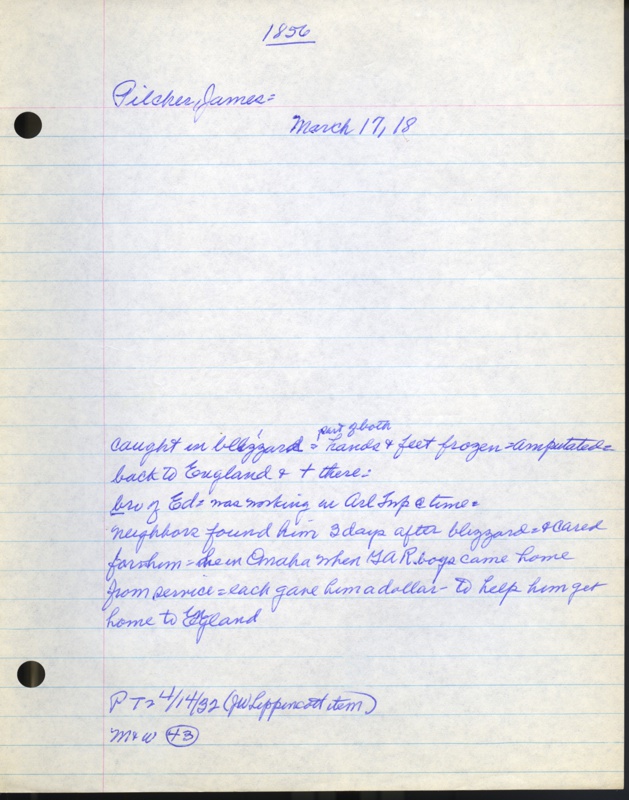 1856
Pilcher, James=
March 17, 18
part of both
caught in blizzard = hands & feet frozen = amputated =
back to England & + there =
bro of Ed = was working in Arl Twp @ time =
neighbors found him 3 days after blizzard = & cared
for him = he in Omaha when GAR boys came home
from service = each gave him a dollar - to help him get
home to England
P T = 4/14/32 (JW Lippincott item)
M & W 43